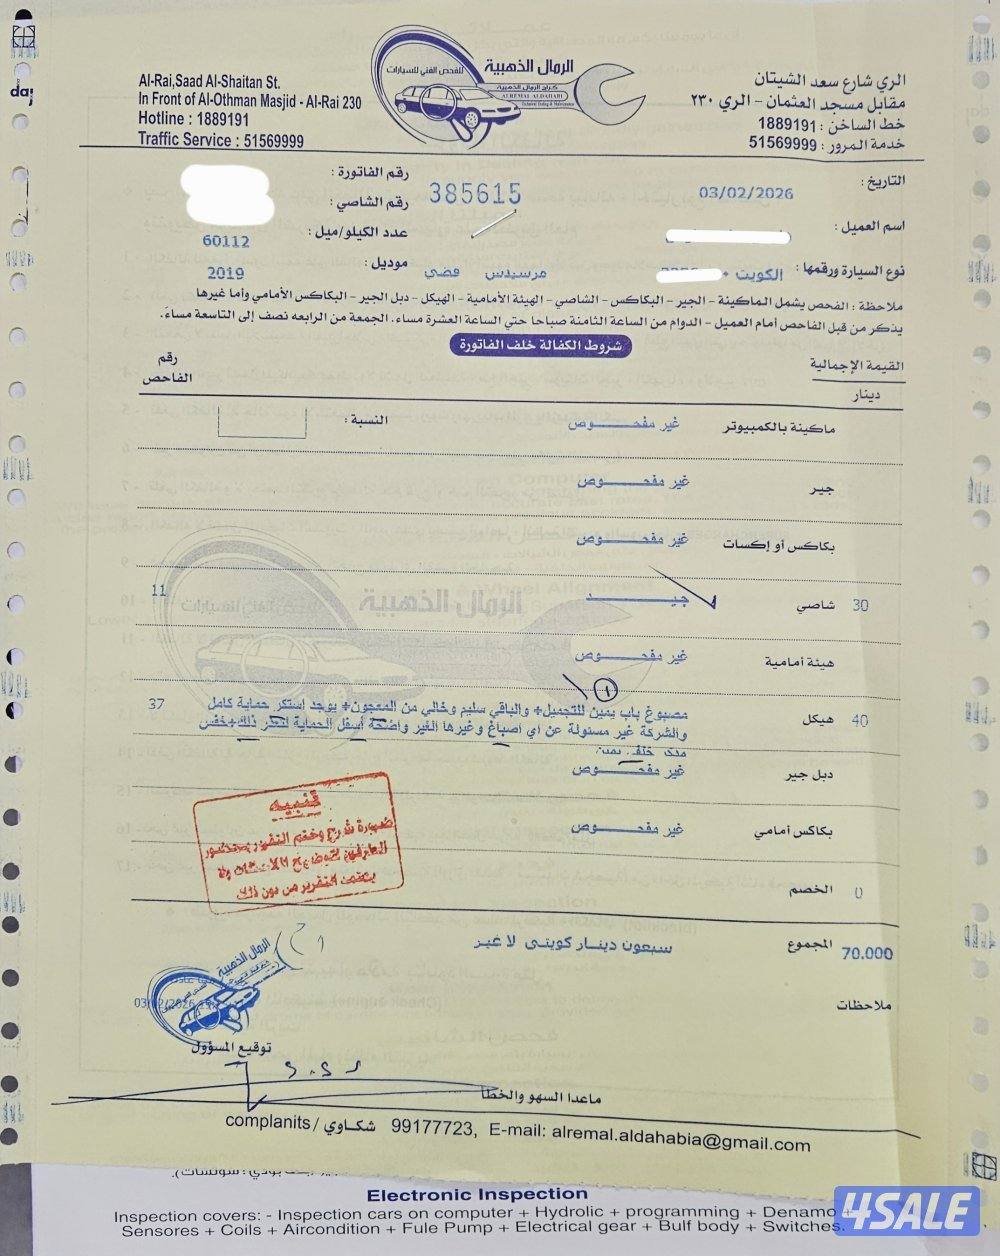 Al-Rai,Saad Al-Shaitan St.
In Front of Al-Othman Masjid - Al-Rai 230
Hotline : 1889191
Traffic Service : 51569999
الرمال الذهبية
للفحص الفني للسيارات
كراج الرمال الذهبية
ALREMAL ALDAHABI
Technical Testing & Maintenance
الري شارع سعد الشيتان
مقابل مسجد العثمان - الري ٢٣٠
خط الساخن : 1889191
خدمة المرور : 51569999
التاريخ : 03/02/2026
رقم الفاتورة : 385615
رقم الشاصي :
اسم العميل :
عدد الكيلو/ميل : 60112
نوع السيارة ورقمها : الكويت مرسيدس فضي
موديل : 2019
ملاحظة : الفحص يشمل الماكينة - الجير - البكاكس - الشاصي - الهيئة الأمامية - الهيكل - دبل الجير - البكاكس الأمامي وأما غيرها
يذكر من قبل الفاحص أمام العميل - الدوام من الساعة الثامنة صباحا حتي الساعة العشرة مساء. الجمعة من الرابعه نصف إلى التاسعة مساء.
شروط الكفالة خلف الفاتورة
القيمة الإجمالية
دينار
رقم
الفاحص
ماكينة بالكمبيوتر غير مفحــــوص النسبة :
جير غير مفحــــوص
بكاكس أو إكسات غير مفحــــوص
30 شاصي جيــــد 11
هيئة أمامية غير مفحــــوص
1
40 هيكل مصبوغ باب يمين للتجميل+ والباقي سليم وخالي من المعجون+ يوجد إستكر حماية كامل 37
والشركة غير مسئولة عن اي أصباغ وغيرها الغير واضحة أسفل الحماية لتعذر ذلك+خفس
خلف يمين
دبل جير غير مفحــــوص
بكاكس أمامي غير مفحــــوص
تنبيه
ضرورة شرح وختم التقرير بحضور
الطرفين لتوضيح الملاحظات ولا
يعتمد التقرير من دون ذلك
0 الخصم
70.000 المجموع سبعون دينار كويتى لا غير
ملاحظات
الرمال الذهبية
03/02/2026
توقيع المسؤول
ماعدا السهو والخطأ
complanits / شكاوي 99177723, E-mail: alremal.aldahabia@gmail.com
Electronic Inspection
Inspection covers: - Inspection cars on computer + Hydrolic + programming + Denamo +
Sensores + Coils + Aircondition + Fule Pump + Electrical gear + Bulf body + Switches.
4SALE